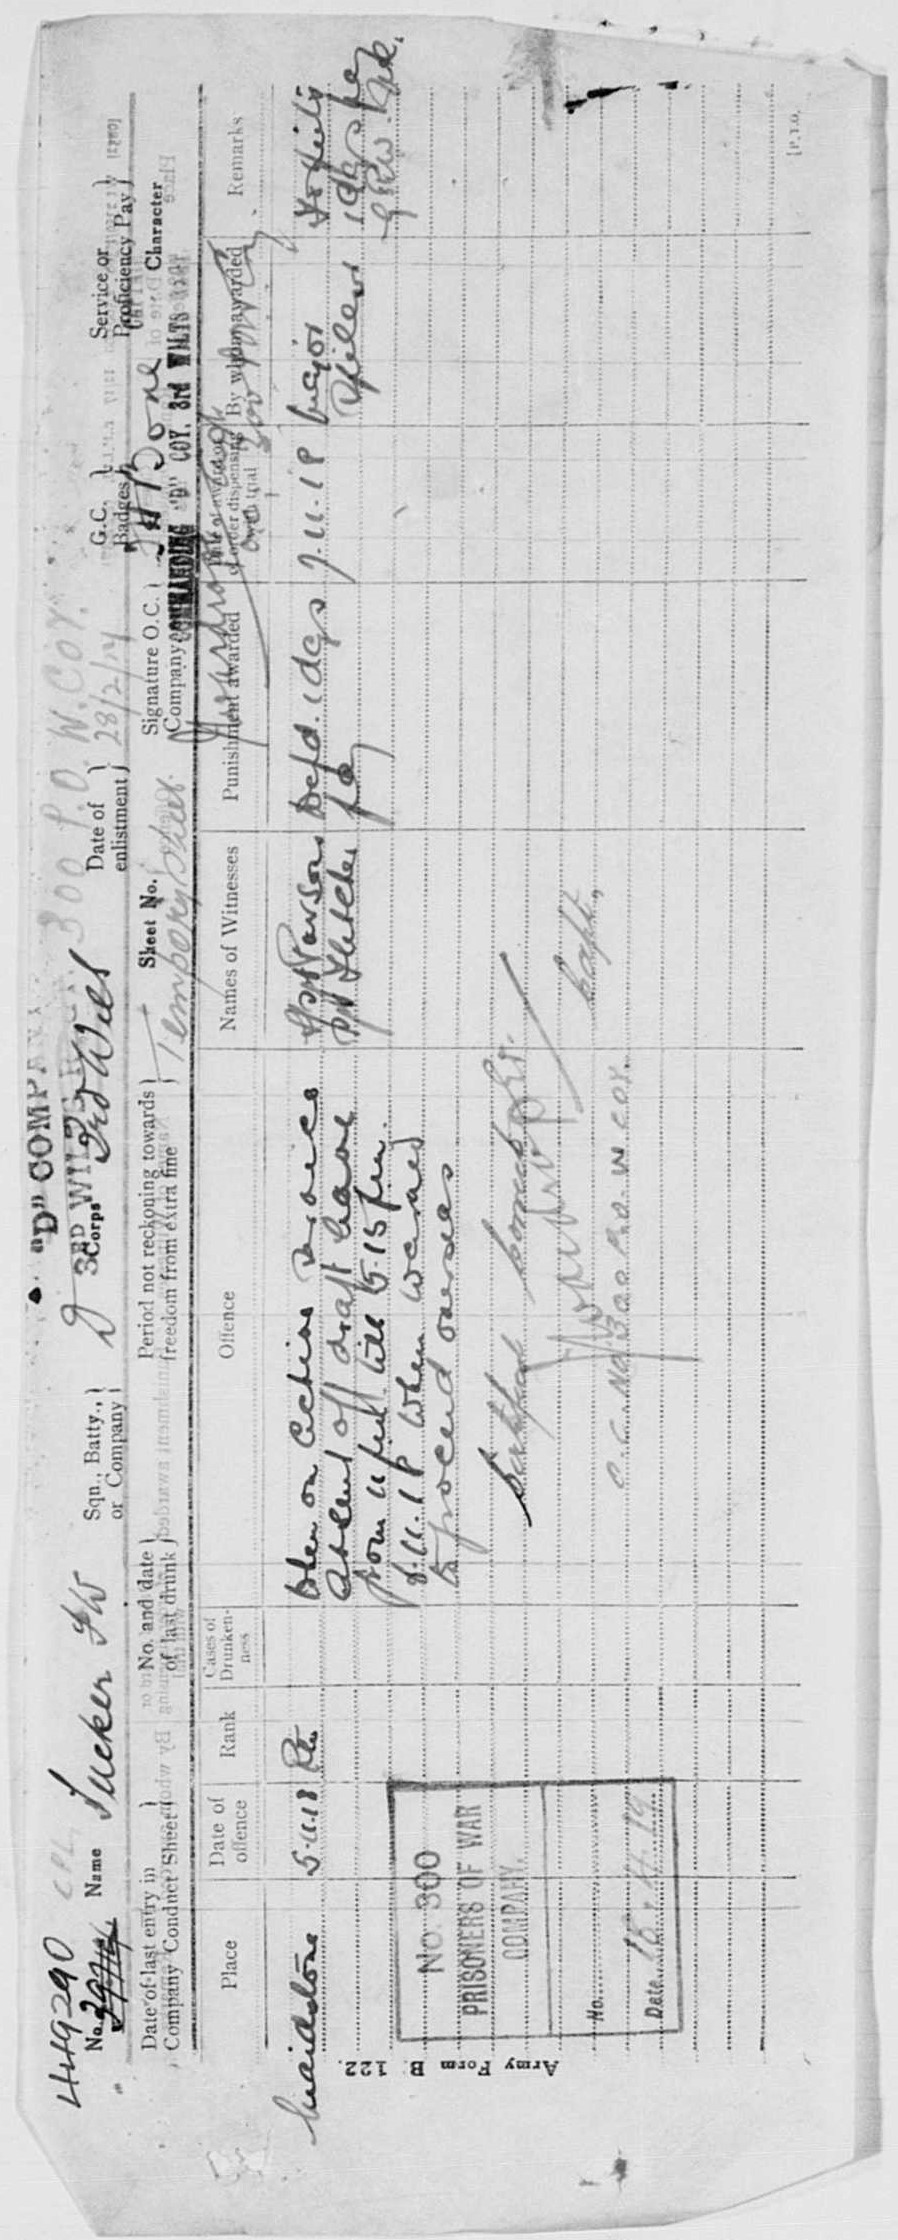 "D" COMPANY
3RD WILTS
449290 CPL
No. 39714 Name Tucker FW Sqn., Batty., or Company } D Corps 3rd Wilts 300 P.O.W. COY. Date of enlistment } 28/2/17 G.C. Badges } Service or Proficiency Pay }
Date of last entry in Company Conduct Sheet } No. and date of last drunk } Period not reckoning towards freedom from extra fine } Sheet No. Signature O.C. Company } Character
Tempory Sheet
COMMANDING "D" COY. 3rd WILTS REGT
Place Date of offence Rank Cases of Drunkenness Offence Names of Witnesses Punishment awarded Date of award or of order dispensing with trial By whom awarded Remarks
Maidstone 5.11.18 Pte When on Active Service
Absent off draft leave
from 11 pm till 5.15 pm
when warned
to proceed overseas
Parsons
Depd. 1 dys
pay
7.11.18
Major
Forfeits
1 dys pay
Certified Correct
Capt.
O.C. No 300 P.O.W. COY.
No. 300
PRISONERS OF WAR
COMPANY.
No.
Date 15.4.19
Army Form B. 122.
[P.T.O.